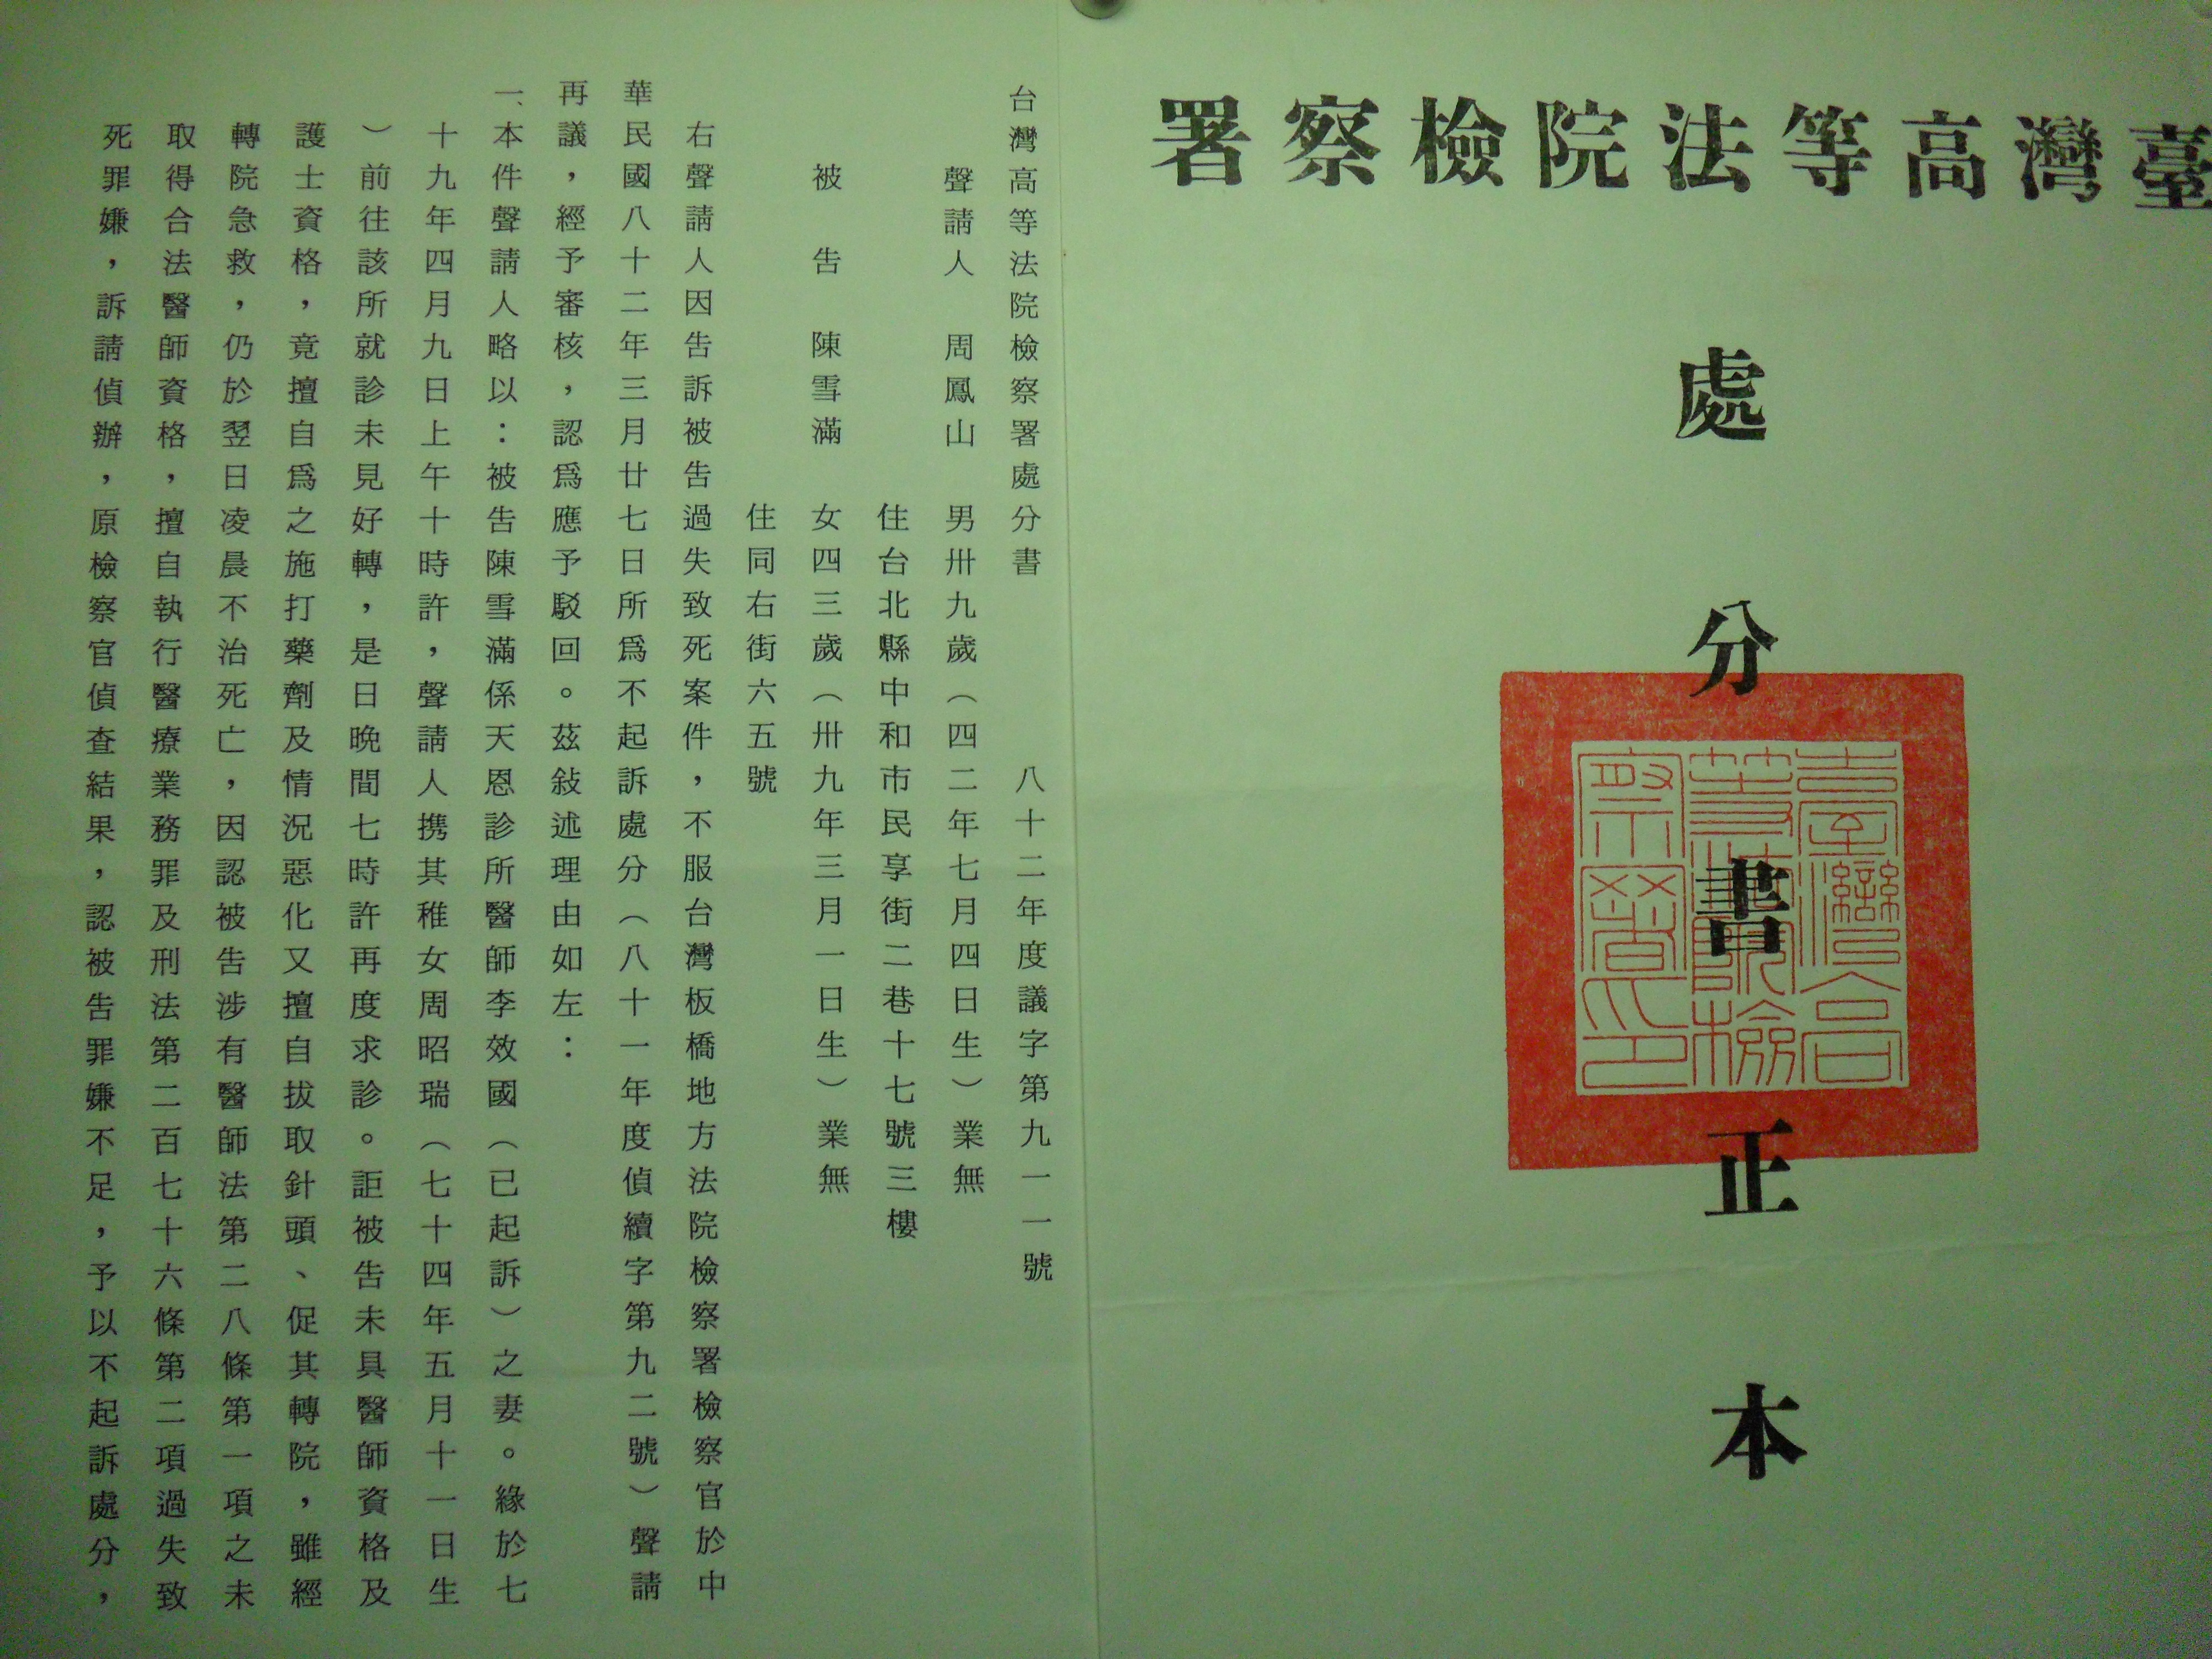 臺灣高等法院檢察署
處分書正本
臺灣高等法院檢察署印
台灣高等法院檢察署處分書　八十二年度議字第九一一號
聲請人　周鳳山　男卅九歲（四二年七月四日生）業無
住台北縣中和市民享街二巷十七號三樓
被告　陳雪滿　女四三歲（卅九年三月一日生）業無
住同右街六五號
右聲請人因告訴被告過失致死案件，不服台灣板橋地方法院檢察署檢察官於中
華民國八十二年三月廿七日所為不起訴處分（八十一年度偵續字第九二號）聲請
再議，經予審核，認為應予駁回。茲敍述理由如左：
一、本件聲請人略以：被告陳雪滿係天恩診所醫師李效國（已起訴）之妻。緣於七
十九年四月九日上午十時許，聲請人携其稚女周昭瑞（七十四年五月十一日生
）前往該所就診未見好轉，是日晚間七時許再度求診。詎被告未具醫師資格及
護士資格，竟擅自爲之施打藥劑及情況惡化又擅自拔取針頭、促其轉院，雖經
轉院急救，仍於翌日凌晨不治死亡，因認被告涉有醫師法第二八條第一項之未
取得合法醫師資格，擅自執行醫療業務罪及刑法第二百七十六條第二項過失致
死罪嫌，訴請偵辦，原檢察官偵查結果，認被告罪嫌不足，予以不起訴處分，